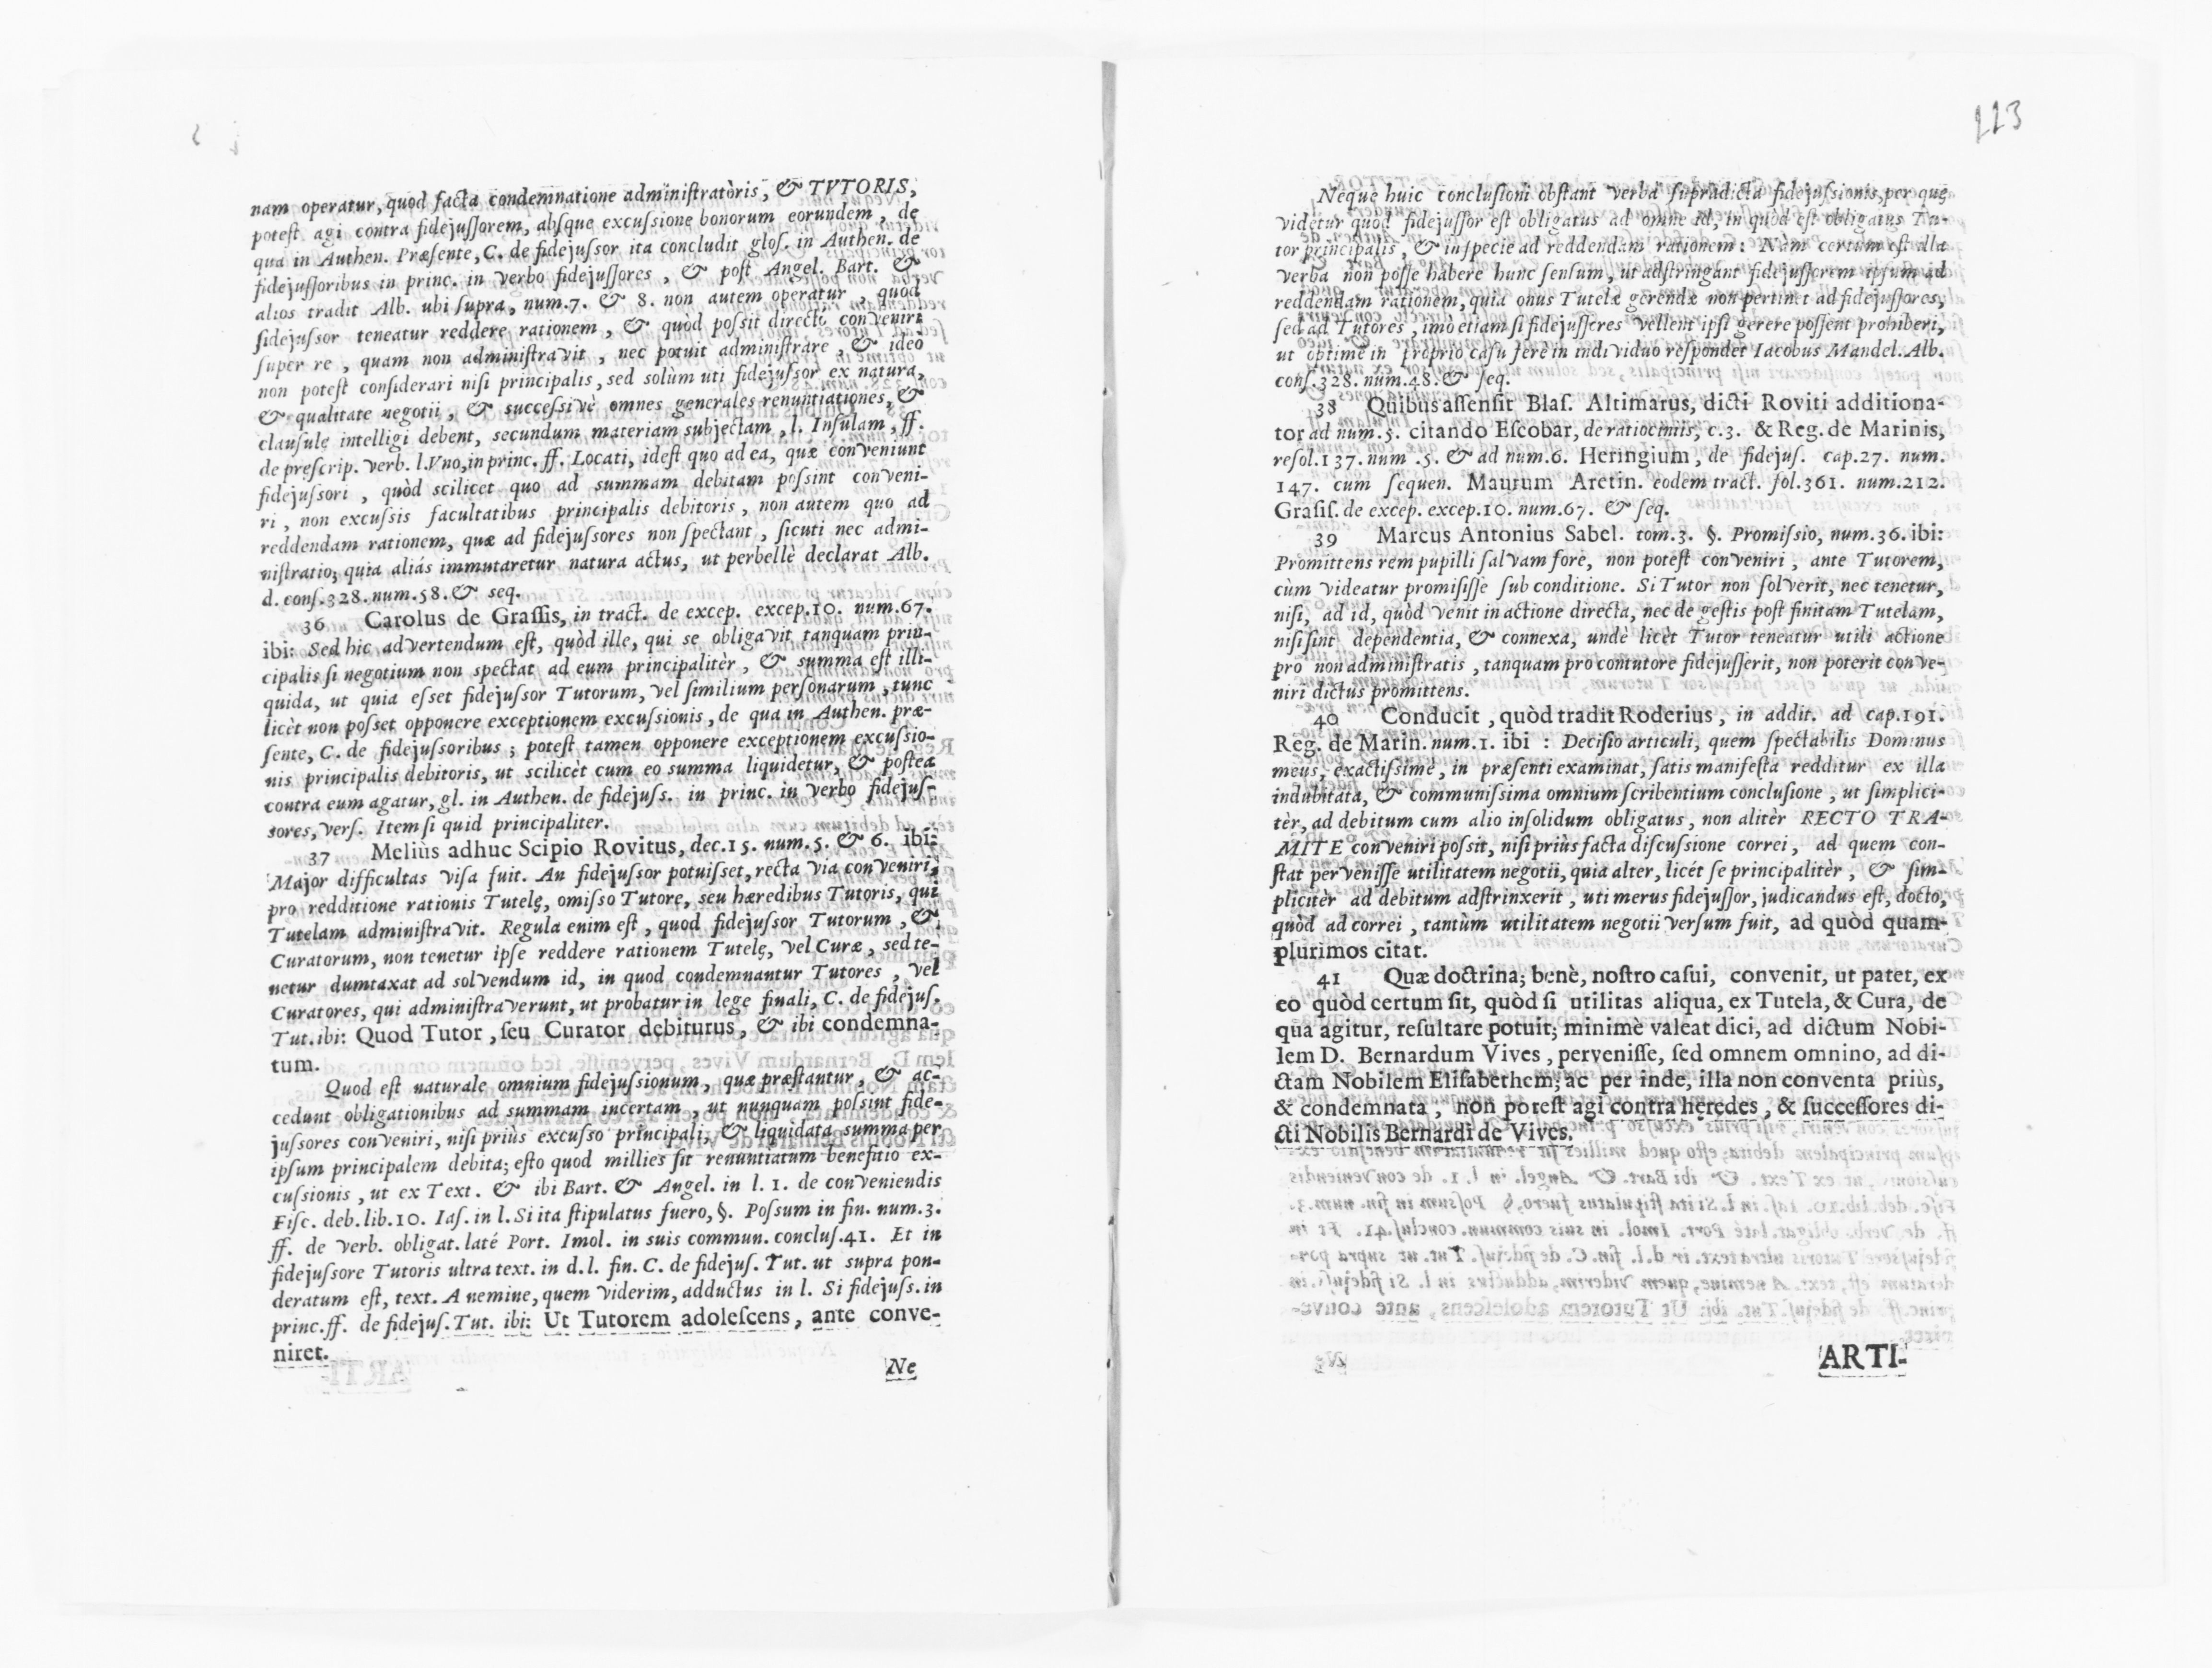 nam operatur, quod facta condemnatione administratòris, & TVTORIS,
potest agi contra fidejussorem, absque excussione bonorum eorundem, de
qua in Authen. Præsente, C. de fidejussor ita concludit glos. in Authen. de
fidejussoribus in princ. in verbo fidejussores, & post Angel. Bart. &
alios tradit Alb. ubi supra, num.7. & 8. non autem operatur, quod
fidejussor teneatur reddere rationem, & quòd possit directè conveniri
super re, quam non administravit, nec potuit administrare, & ideò
non potest considerari nisi principalis, sed solùm uti fidejussor ex natura,
& qualitate negotii, & successivè omnes generales renuntiationes, &
clausulę intelligi debent, secundum materiam subjectam, l. Insulam, ff.
de pręscrip. verb. l.Vno, in princ. ff. Locati, idest quo ad ea, quæ conveniunt
fidejussori, quòd scilicet quo ad summam debitam possint conveni-
ri, non excussis facultatibus principalis debitoris, non autem quo ad
reddendam rationem, quæ ad fidejussores non spectant, sicuti nec admi-
nistratio; quia aliás immutaretur natura actus, ut perbellè declarat Alb.
d. cons.328. num.58. & seq.
36 Carolus de Grassis, in tract. de excep. excep.10. num.67.
ibi: Sed hic advertendum est, quòd ille, qui se obligavit tanquam prin-
cipalis si negotium non spectat ad eum principalitèr, & summa est illi-
quida, ut quia esset fidejussor Tutorum, vel similium personarum, tunc
licèt non posset opponere exceptionem excussionis, de qua in Authen. præ-
sente, C. de fidejussoribus; potest tamen opponere exceptionem excussio-
nis principalis debitoris, ut scilicèt cum eo summa liquidetur, & postea
contra eum agatur, gl. in Authen. de fidejuss. in princ. in verbo fidejus-
sores, vers. Item si quid principaliter.
37 Meliùs adhuc Scipio Rovitus, dec.15. num.5. & 6. ibi:
Major difficultas visa fuit. An fidejussor potuisset, recta via conveniri,
pro redditione rationis Tutelę, omisso Tutore, seu hæredibus Tutoris, qui
Tutelam administravit. Regula enim est, quod fidejussor Tutorum, &
Curatorum, non tenetur ipse reddere rationem Tutelę, vel Curæ, sed te-
netur dumtaxat ad solvendum id, in quod condemnantur Tutores, vel
Curatores, qui administraverunt, ut probatur in lege finali, C. de fidejus.
Tut. ibi: Quod Tutor, seu Curator debiturus, & ibi condemna-
tum.
Quod est naturale omnium fidejussionum, quæ præstantur, & ac-
cedunt obligationibus ad summam incertam, ut nunquam possint fide-
jussores conveniri, nisi priùs excusso principali, & liquidata summa per
ipsum principalem debita; esto quod millies sit renuntiatum benefitio ex-
cussionis, ut ex Text. & ibi Bart. & Angel. in l. 1. de conveniendis
Fisc. deb. lib.10. Ias. in l. Si ita stipulatus fuero, §. Possum in fin. num.3.
ff. de verb. obligat. laté Port. Imol. in suis commun. conclus.41. Et in
fidejussore Tutoris ultra text. in d. l. fin. C. de fidejus. Tut. ut supra pon-
deratum est, text. A nemine, quem viderim, adductus in l. Si fidejuss. in
princ. ff. de fidejus. Tut. ibi: Ut Tutorem adolescens, ante conve-
niret.
Ne
113
Neque huic conclusioni obstant verba supradicta fidejussionis, per quę
videtur quòd fidejussor est obligatus ad omne id, in quòd est obligatus Tu-
tor principalis, & in specie ad reddendam rationem: Nàm certum est illa
verba non posse habere hunc sensum, ut adstringant fidejussorem ipsum ad
reddendam rationem, quia onus Tutelæ gerendæ non pertinet ad fidejussores,
sed ad Tutores, imo etiam si fidejussores vellent ipsi gerere possent prohiberi,
ut optimè in proprio casu fere in individuo respondet Iacobus Mandel. Alb.
cons.328. num.48. & seq.
38 Quibus assensit Blas. Altimarus, dicti Roviti additiona-
tor ad num.5. citando Escobar, de ratiociniis, c.3. & Reg. de Marinis,
resol.137. num.5. & ad num.6. Heringium, de fidejus. cap.27. num.
147. cum sequen. Maurum Aretin. eodem tract. fol.361. num.212.
Grasis. de excep. excep.10. num.67. & seq.
39 Marcus Antonius Sabel. tom.3. §. Promissio, num.36. ibi:
Promittens rem pupilli salvam fore, non potest conveniri, ante Tutorem,
cùm videatur promisisse sub conditione. Si Tutor non solverit, nec tenetur,
nisi, ad id, quòd venit in actione directa, nec de gestis post finitam Tutelam,
nisi sint dependentia, & connexa, undè licèt Tutor teneatur utili actione
pro non administratis, tanquam pro contutore fidejusserit, non poterit conve-
niri dictus promittens.
40 Conducit, quòd tradit Roderius, in addit. ad cap.191.
Reg. de Marin. num.1. ibi: Decisio articuli, quem spectabilis Dominus
meus, exactissimè, in præsenti examinat, satis manifesta redditur ex illa
indubitata, & communissima omnium scribentium conclusione, ut simplici-
tèr, ad debitum cum alio insolidum obligatus, non alitèr RECTO TRA-
MITE conveniri possit, nisi priùs facta discussione correi, ad quem con-
stat pervenisse utilitatem negotii, quia alter, licét se principalitèr, & sim-
plicitèr ad debitum adstrinxerit, uti merus fidejussor, judicandus est, docto,
quòd ad correi, tantùm utilitatem negotii versum fuit, ad quòd quam-
plurimos citat.
41 Quæ doctrina; benè, nostro casui, convenit, ut patet, ex
eo quòd certum sit, quòd si utilitas aliqua, ex Tutela, & Cura, de
qua agitur, resultare potuit; minimè valeat dici, ad dictum Nobi-
lem D. Bernardum Vives, pervenisse, sed omnem omnino, ad di-
ctam Nobilem Elisabethem; ac per inde, illa non conventa priùs,
& condemnata, non potest agi contra hęredes, & successores di-
cti Nobilis Bernardi de Vives.
ARTI-